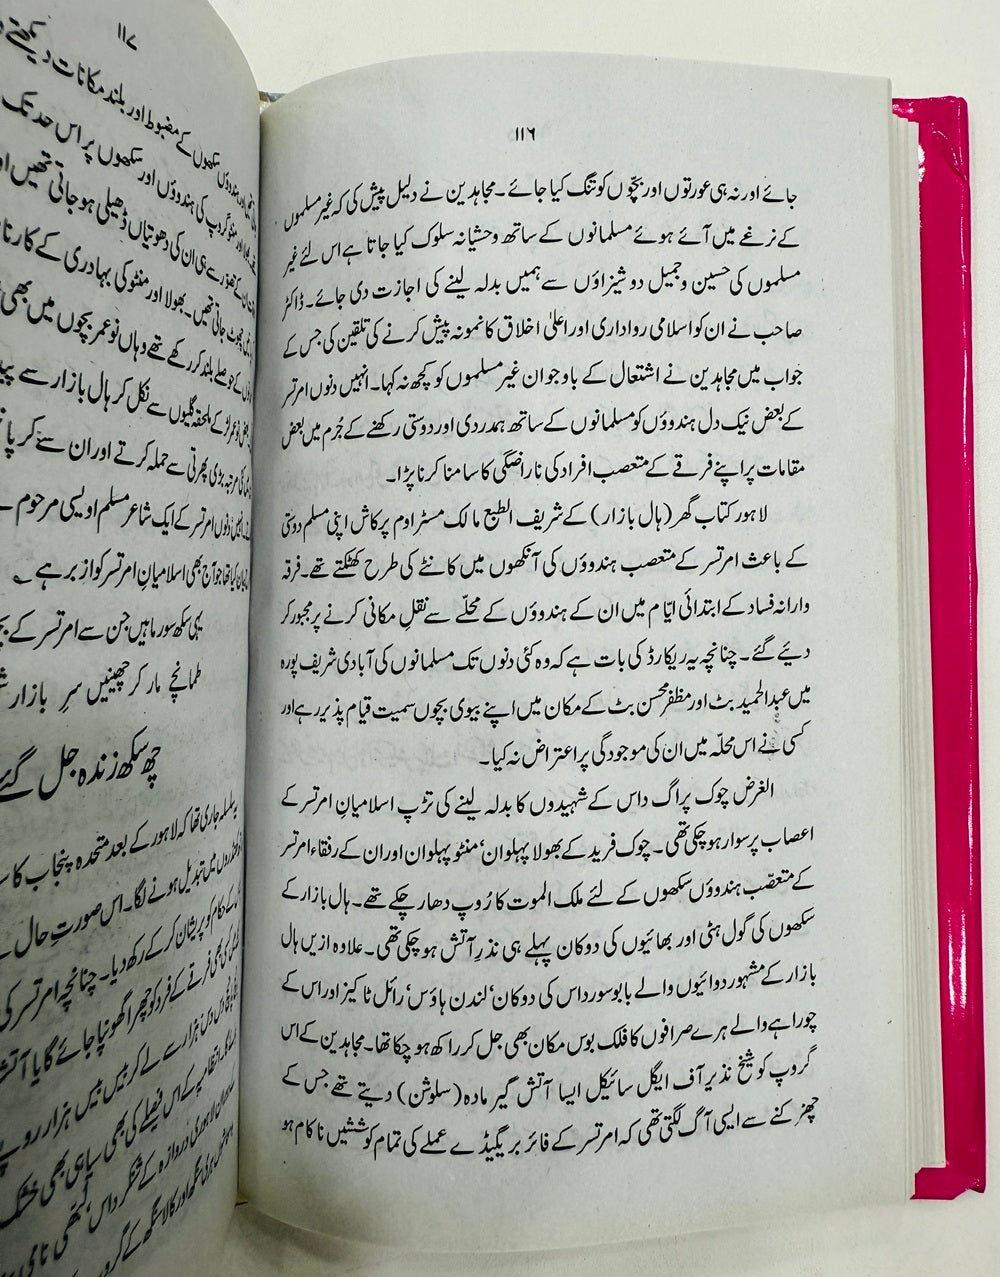 ۱۱۶
جائے اور نہ ہی عورتوں اور بچّوں کو تنگ کیا جائے۔ مجاہدین نے دلیل پیش کی کہ غیر مسلموں
کے نرغے میں آئے ہوئے مسلمانوں کے ساتھ وحشیانہ سلوک کیا جاتا ہے اس لئے غیر
مسلموں کی حسین و جمیل دوشیزاؤں سے ہمیں بدلہ لینے کی اجازت دی جائے۔ ڈاکٹر
صاحب نے ان کو اسلامی رواداری اور اعلیٰ اخلاق کا نمونہ پیش کرنے کی تلقین کی جس کے
جواب میں مجاہدین نے اشتعال کے باوجوان غیر مسلموں کو کچھ نہ کہا۔ انہیں دنوں امرتسر
کے بعض نیک دل ہندوؤں کو مسلمانوں کے ساتھ ہمدردی اور دوستی رکھنے کے جُرم میں بعض
مقامات پر اپنے فرقے کے متعصب افراد کی ناراضگی کا سامنا کرنا پڑا۔
لاہور کتاب گھر (ہال بازار) کے شریف الطبع مالک مسٹر اوم پرکاش اپنی مسلم دوستی
کے باعث امرتسر کے متعصب ہندوؤں کی آنکھوں میں کانٹے کی طرح کھٹکتے تھے۔ فرقہ
وارانہ فساد کے ابتدائی ایّام میں ان کے ہندوؤں کے محلّے سے نقلِ مکانی کرنے پر مجبور کر
دیئے گئے۔ چنانچہ یہ ریکارڈ کی بات ہے کہ وہ کئی دنوں تک مسلمانوں کی آبادی شریف پورہ
میں عبدالحمید بٹ اور مظفر محسن بٹ کے مکان میں اپنے بیوی بچوں سمیت قیام پذیر رہے اور
کسی نے اس محلّہ میں ان کی موجودگی پر اعتراض نہ کیا۔
الغرض چوک پراگ داس کے شہیدوں کا بدلہ لینے کی تڑپ اسلامیانِ امرتسر کے
اعصاب پر سوار ہو چکی تھی۔ چوک فرید کے بھولا پہلوان‘ منٹو پہلوان اور ان کے رفقاء امرتسر
کے متعصّب ہندوؤں سکھوں کے لئے ملک الموت کا رُوپ دھار چکے تھے۔ ہال بازار کے
سکھوں کی گول ہٹی اور بھائیوں کی دوکان پہلے ہی نذرِ آتش ہو چکی تھی۔ علاوہ ازیں ہال
بازار کے مشہور دوائیوں والے بابو سورداس کی دوکان‘ لندن ہاؤس‘ رائل ٹاکیز اور اس کے
چوراہے والے ہرے صرافوں کا فلک بوس مکان بھی جل کر راکھ ہو چکا تھا۔ مجاہدین کے اس
گروپ کو شیخ نذیر آف ایگل سائیکل ایسا آتش گیر مادہ (سلوشن) دیتے تھے جس کے
چھڑکنے سے ایسی آگ لگتی تھی کہ امرتسر کے فائر بریگیڈے عملے کی تمام کوششیں ناکام ہو
۱۱۷
سکھوں کے مضبوط اور بلند مکانات دیکھتے
منٹو گروپ کی ہندوؤں اور سکھوں پر اس حد تک
سے ہی ان کی دھوتیاں ڈھیلی ہو جاتی تھیں
چھوٹ جاتی تھیں۔ بھولا اور منٹو کی بہادری کے
کے حوصلے بلند کر رکھے تھے وہاں نو عمر بچوں میں بھی
ملحقہ گلیوں سے نکل کر ہال بازار سے
مرتبہ بڑی پھرتی سے حملہ کرتے اور ان سے
دنوں امرتسر کے ایک شاعر مسلم اویسی مرحوم
کیا تھا جو آج بھی اسلامیانِ امرتسر کو ازبر ہے
یہی سکھ سورما ہیں جن سے امرتسر کے
طمانچے مار کر چھینیں سرِ بازار
چھ سکھ زندہ جل گئے
سلسلہ جاری تھا کہ لاہور کے بعد متحدہ پنجاب کا
میں تبدیل ہونے لگا۔ اس صورتِ حال
حکام کو پریشان کر کے رکھ دیا۔ چنانچہ امرتسر کی
بھی فرقے کے فرد کو چھرا گھونپا جائے گا یا
ہزار سے لے کر بیس بیس ہزار
اس فیصلے کی بھی سیاہی بھی خشک
لاہوری دروازہ کے شنکر داس